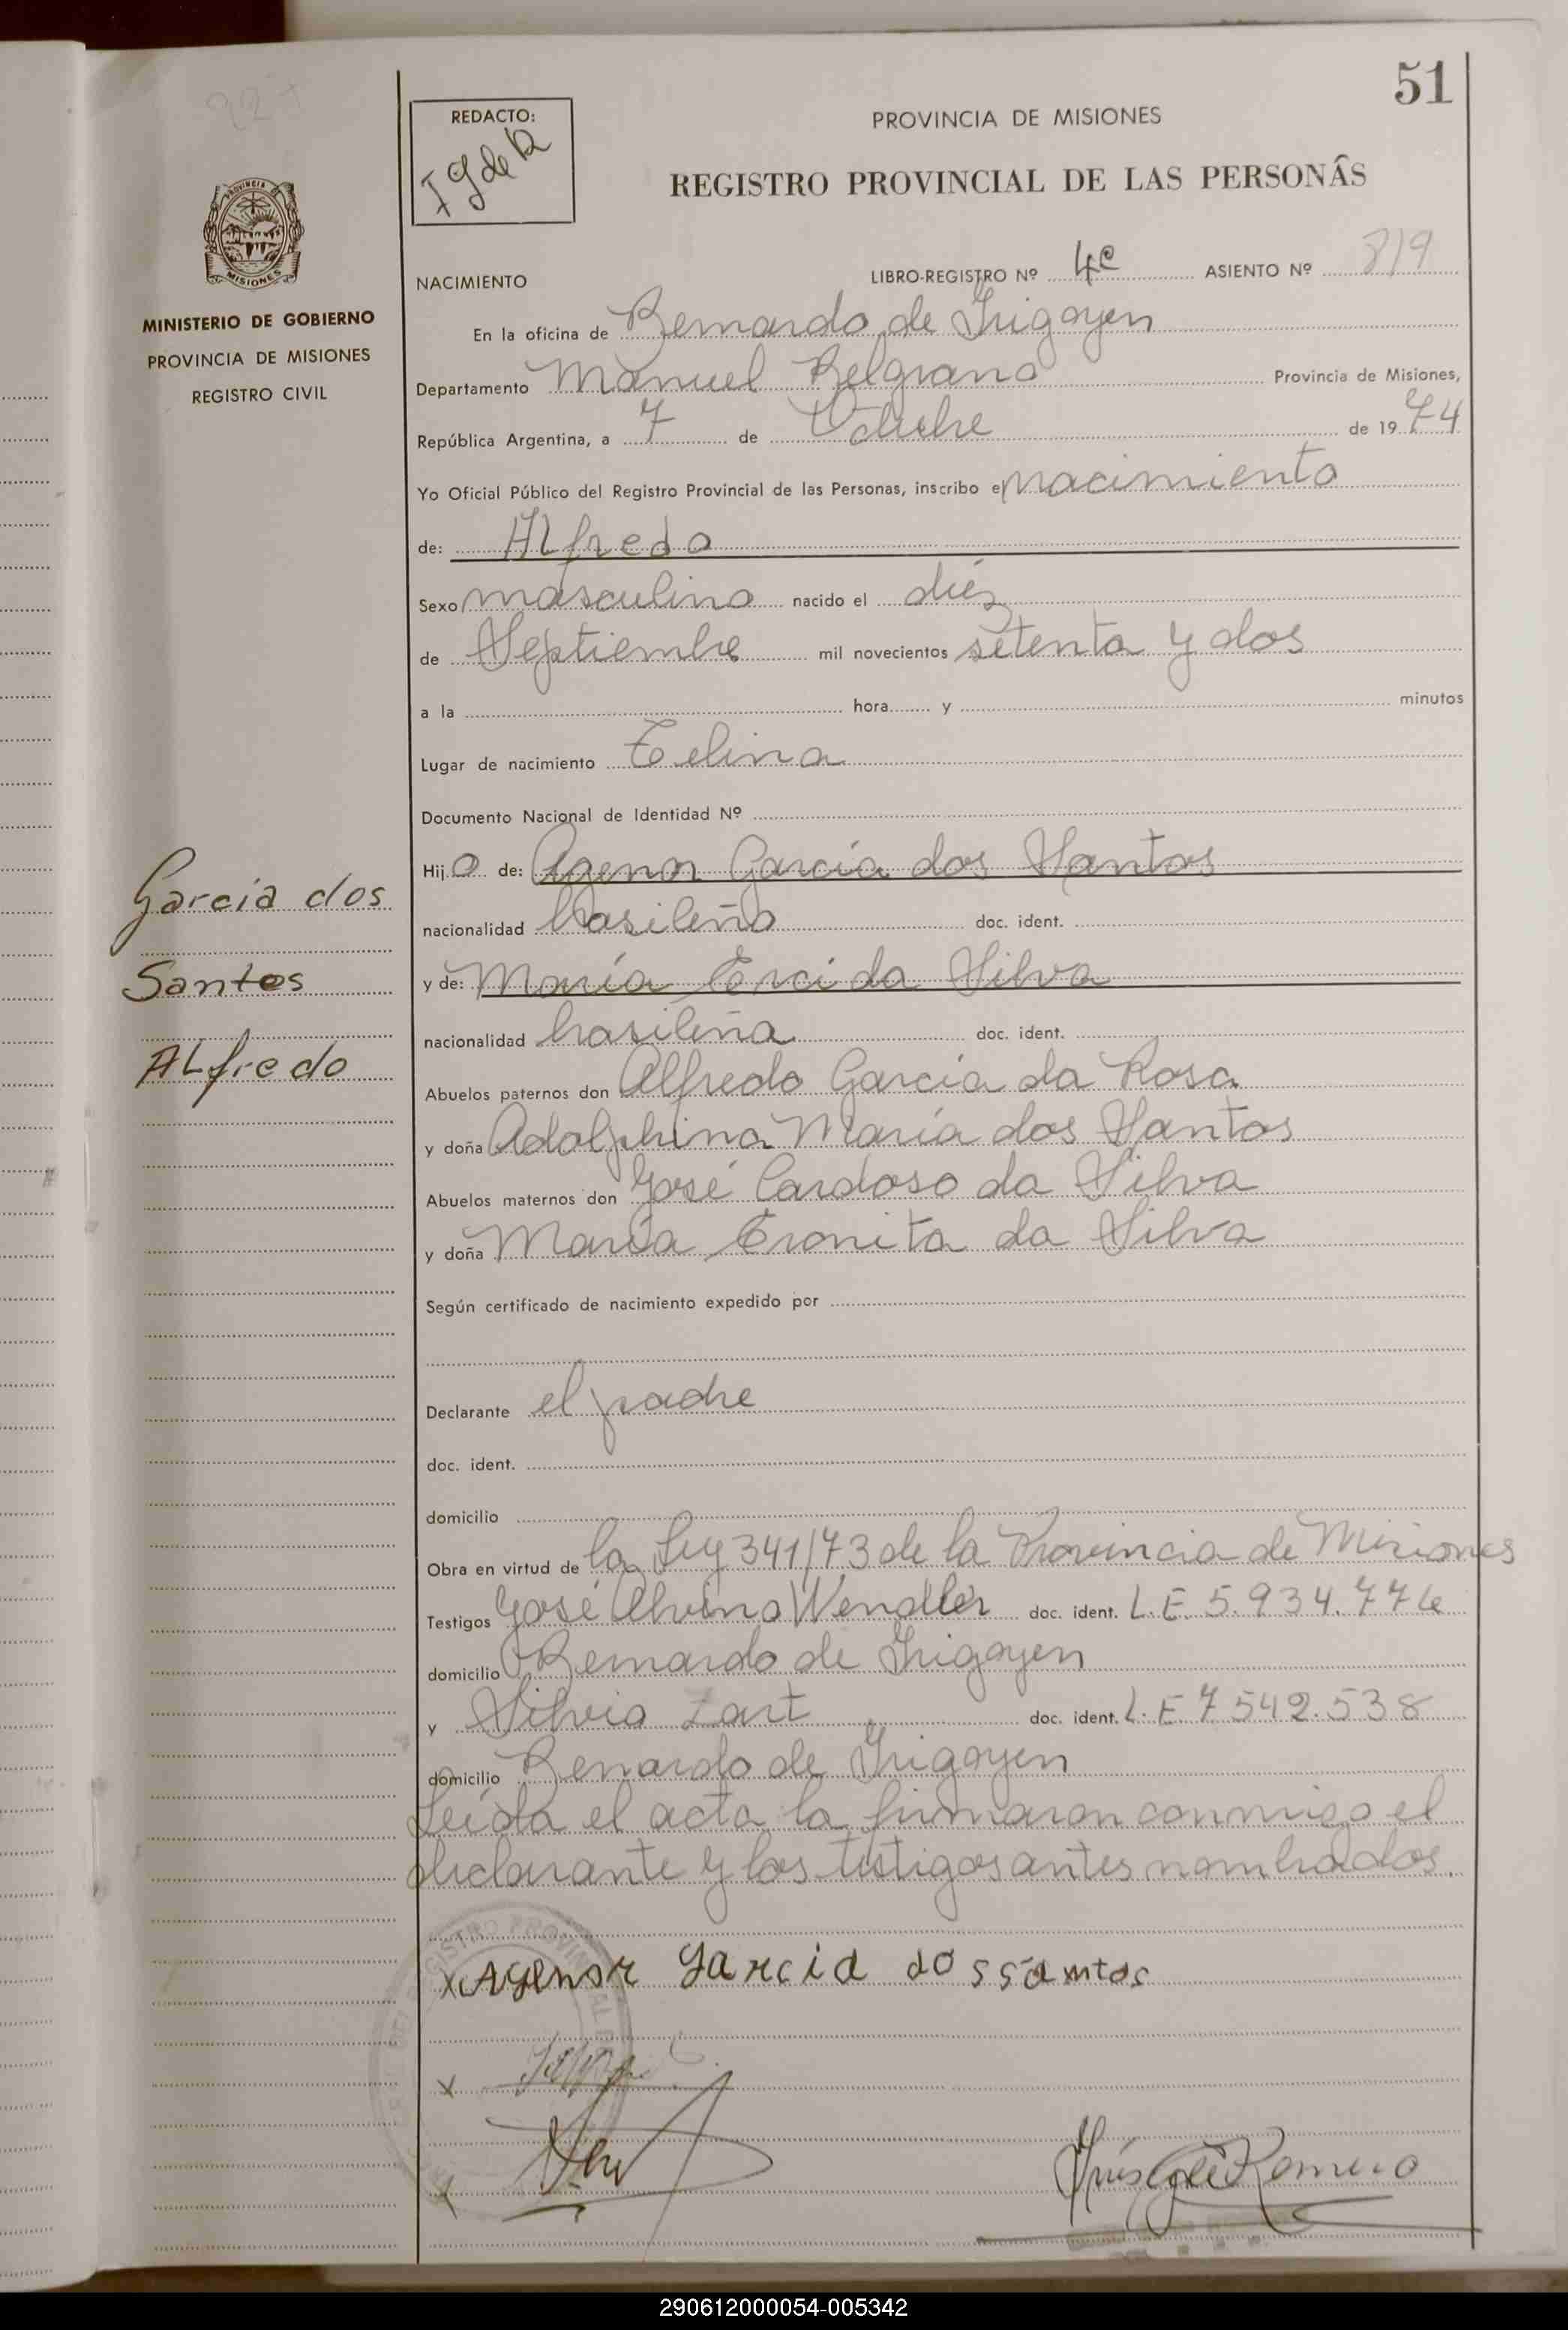 51
REDACTO:
PROVINCIA DE MISIONES
REGISTRO PROVINCIAL DE LAS PERSONAS
PROVINCIA
MISIONES
MINISTERIO DE GOBIERNO
PROVINCIA DE MISIONES
REGISTRO CIVIL
NACIMIENTO LIBRO-REGISTRO Nº 4º ASIENTO Nº 819
En la oficina de Bernardo de Irigoyen
Departamento Manuel Belgrano Provincia de Misiones,
República Argentina, a 7 de Octubre de 1974
Yo Oficial Público del Registro Provincial de las Personas, inscribo el nacimiento
de: ALfredo
Sexo masculino nacido el diez
de Septiembre mil novecientos setenta y dos
a la hora y minutos
Lugar de nacimiento
Documento Nacional de Identidad Nº
Hijo de: Agenor Garcia dos Santos
nacionalidad brasileño doc. ident.
y de: María Ercida Silva
nacionalidad brasileña doc. ident.
Garcia dos
Santos
ALfredo
Abuelos paternos don Alfredo Garcia da Rosa
y doña Adolphina María dos Santos
Abuelos maternos don José Cardoso da Silva
y doña María Eronita da Silva
Según certificado de nacimiento expedido por
Declarante el padre
doc. ident.
domicilio
Obra en virtud de la Ley 341/73 de la Provincia de Misiones
Testigos José Alvino Wendler doc. ident. L.E. 5.934.776
domicilio Bernardo de Irigoyen
y Silvio Zart doc. ident. L.E 7.542.538
domicilio Benardo de Irigoyen
Leída el acta la firmaron conmigo el
declarante y los testigos antes nombrados.
x Agenor Garcia dos santos
x
x
Romero
290612000054-005342